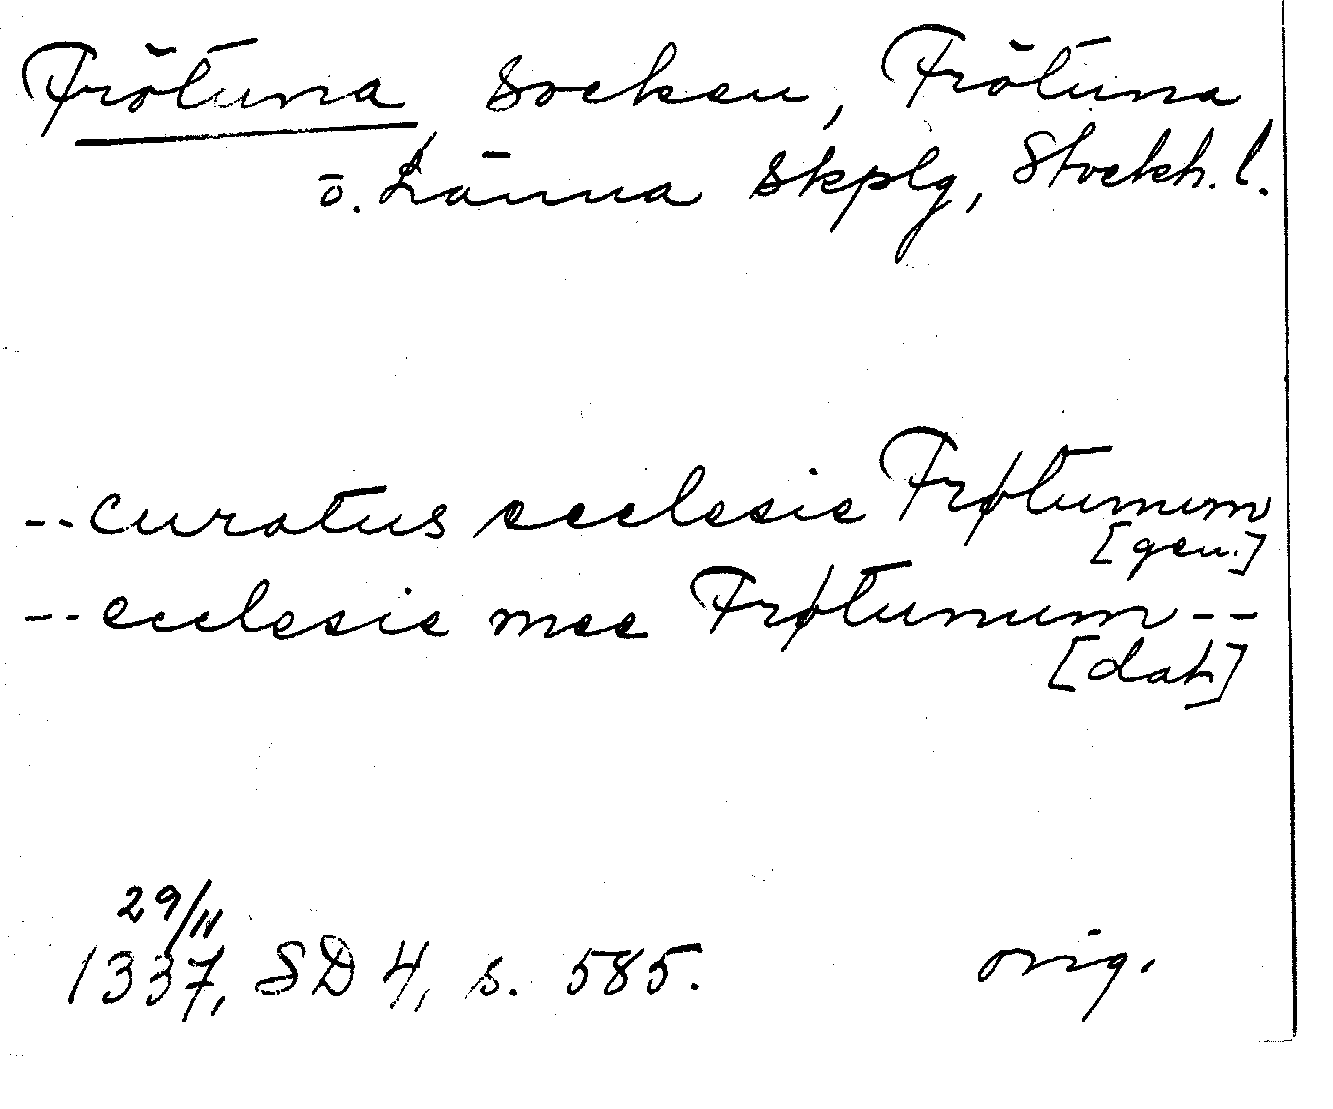 Frötuna socken, Frötuna
o. Länna skplg, Stockh. l.
--curatus ecclesie Frøtunum
[gen.]
--ecclesie mee Frøtunum--
[dat.]
29/11
1337, SD 4, s. 585. orig.